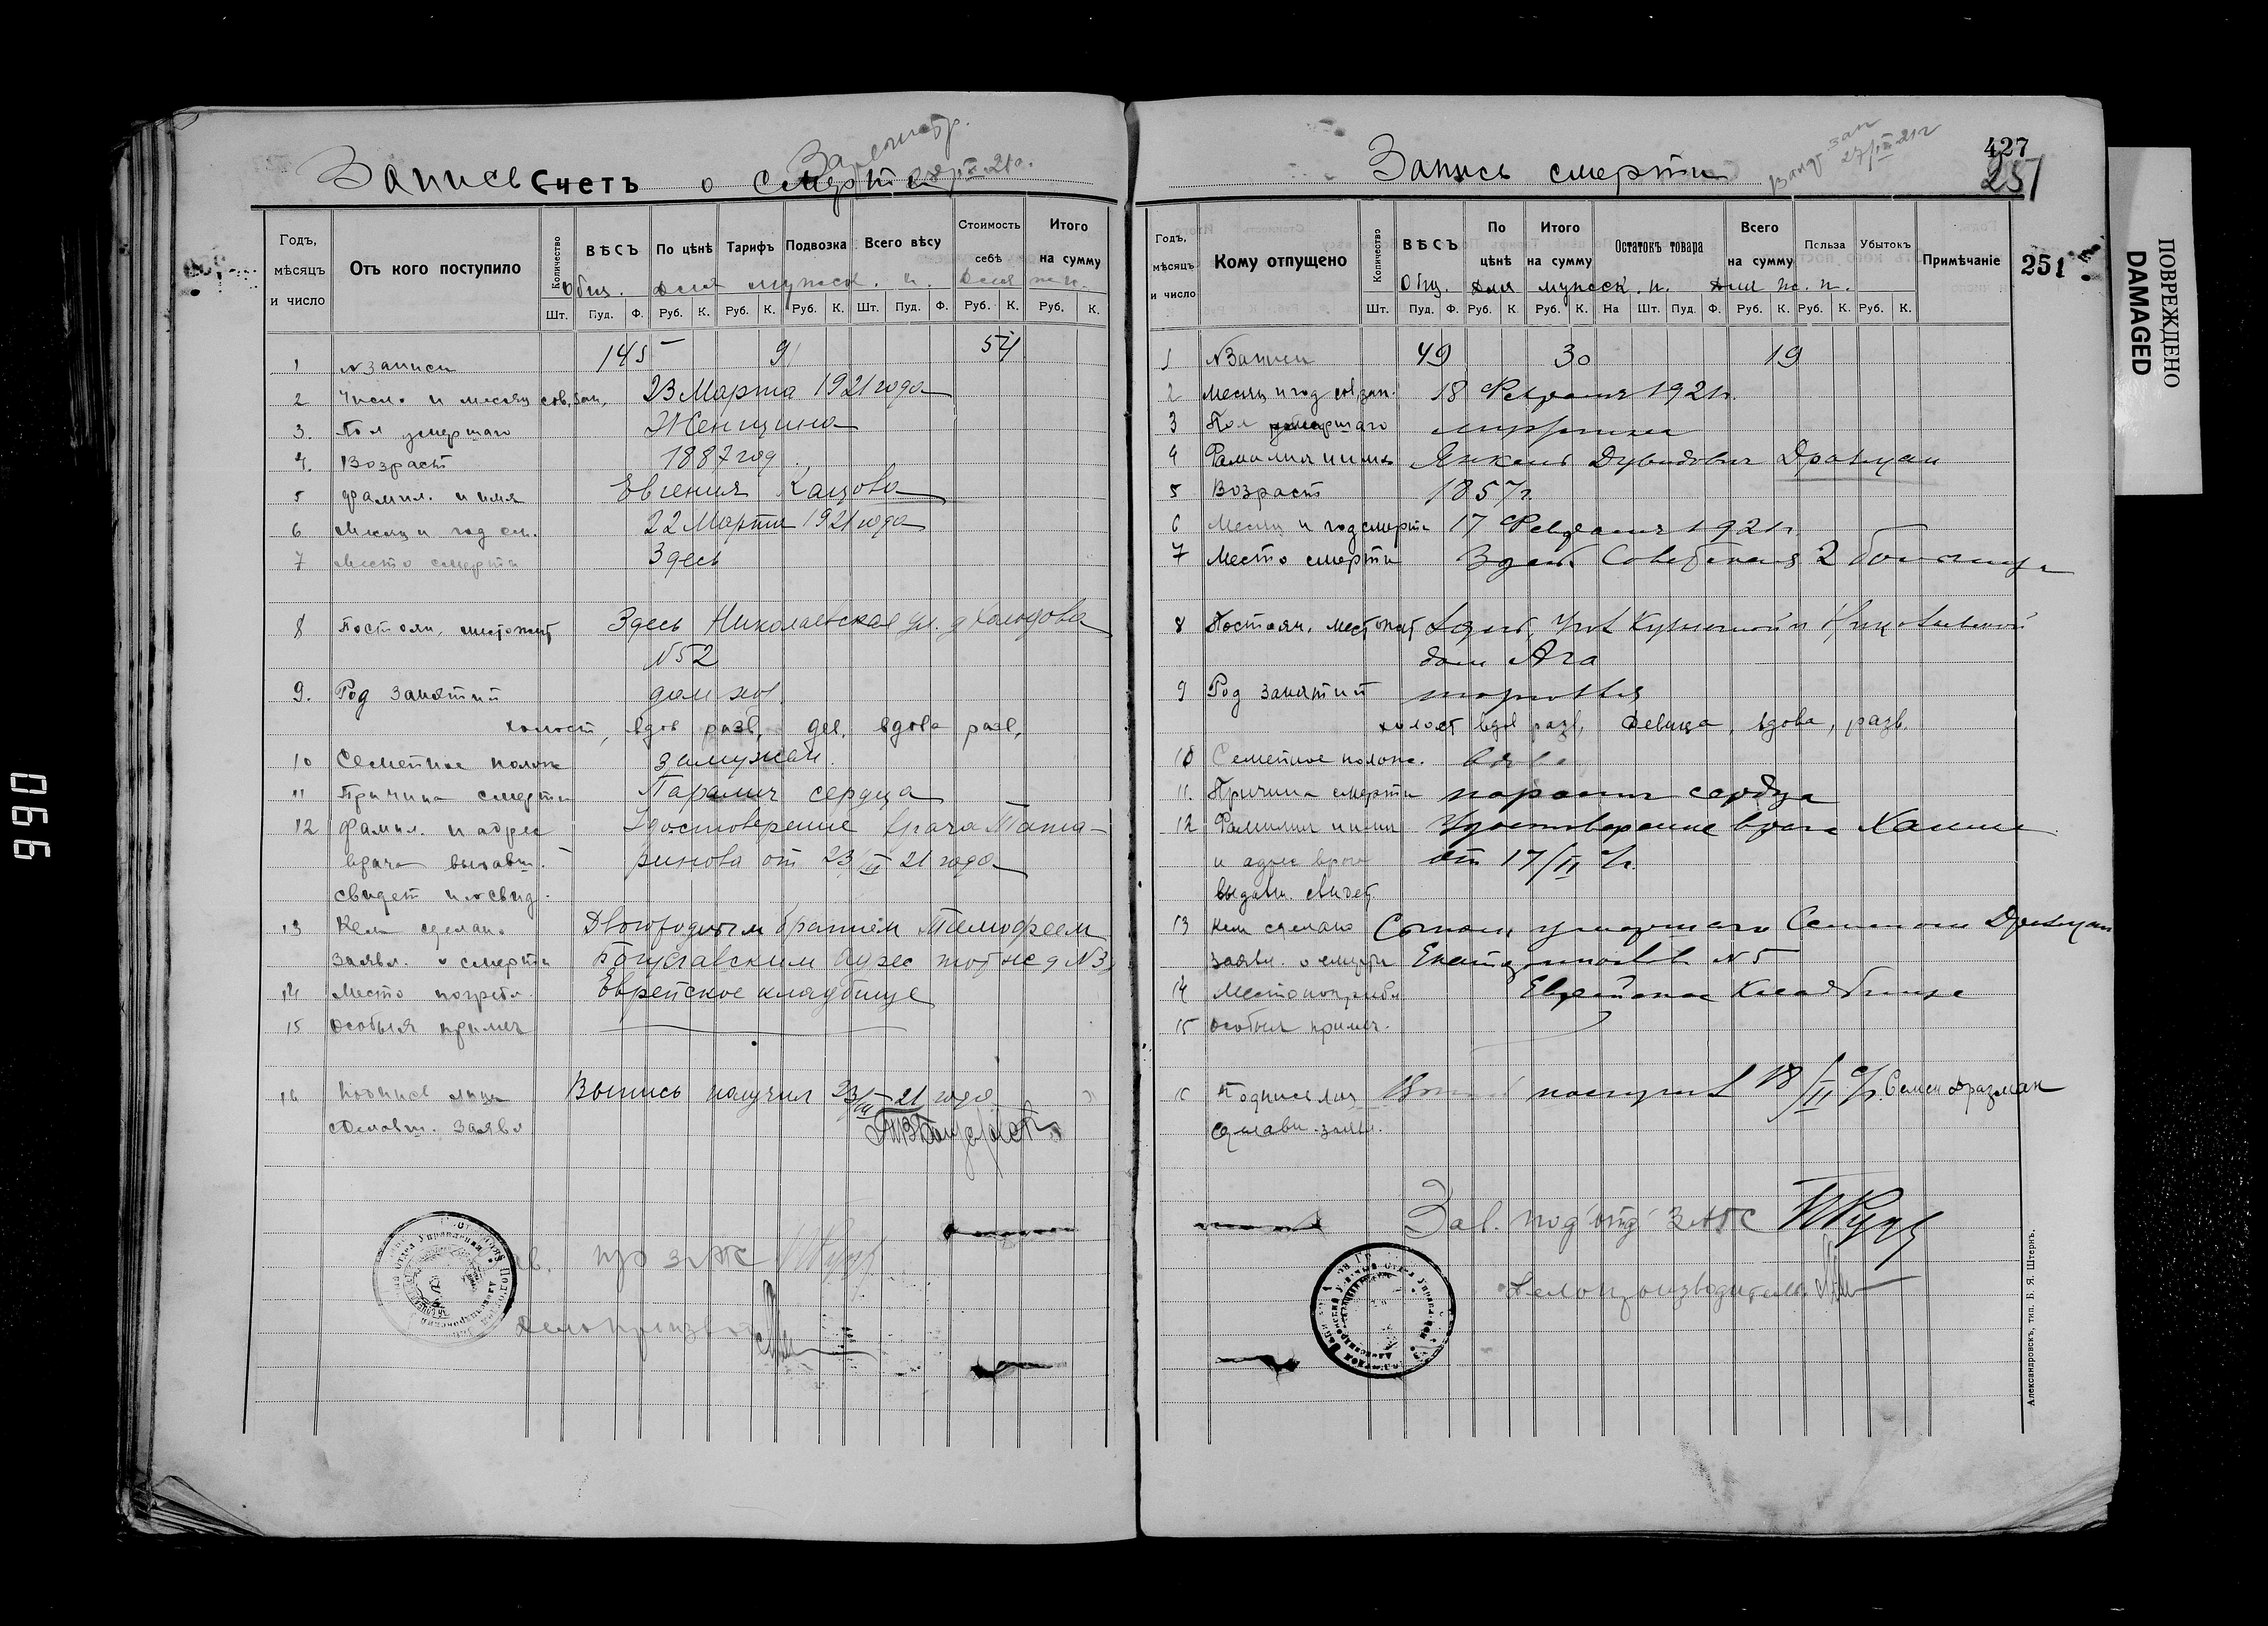 Запись Счетъ о смерти
Годъ, мѣсяцъ и число
Отъ кого поступило
Количество
ВѢСЪ
По цѣнѣ
Тарифъ
Подвозка
Всего вѣсу
Стоимость себѣ
Итого на сумму
Общ. Для мужск. п. Для ж. п.
Шт. Пуд. Ф. Руб. К. Руб. К. Руб. К. Шт. Пуд. Ф. Руб. К. Руб. К.
1 N записи 145 91 54
2 Число и месяц сов. зап. 23 Марта 1921 года
3. Пол умершаго Женщина
4. Возраст 1887 год
5 Фамил. и имя Евгения Кацова
6 Месяц и год см. 22 Марта 1921 года
7 Место смерти Здесь
8 Постоян. местожит Здесь Николаевская ул. д Холодова
N 52
9. Род занятий дом хоз.
холост, вдов разв, дев. вдова разв,
10 Семейное полож замужем.
11 Причина смерти Паралич сердца
12 Фамил. и адрес Удостоверение врача Тата-
врача выдавш. ринова от 23/III 21 года
свидет
13 Кем сделан. Двоюродным братием Тимофеем
заявл. о смерти Богуславским Адрес тот же д N 3
14 Место погребл. Еврейское кладбище
15 Особыя примеч
16 Подпись лица Выпись получил 23/III 21 года
сделавш. заявл
Делопроизвод
Запись смерти
427
251
Годъ, мѣсяцъ и число
Кому отпущено
Количество
ВѢСЪ
По цѣнѣ
Итого на сумму
Остатокъ товара
Всего на сумму
Польза
Убытокъ
Примѣчаніе
251
Общ. Для мужск. п. Для ж. п.
Шт. Пуд. Ф. Руб. К Руб. К. На Шт. Пуд. Ф. Руб. К. Руб. К. Руб. К.
1 N Записи 49 30 19
2 Месяц и год сов. зап. 18 Февраля 1921 г.
3 Пол умершаго мужчина
4 Фамилия и имя Янкель Дувидович Дразман
5 Возраст 1857 г.
6 Месяц и год смерти 17 Февраля 1921 г.
7 Место смерти Здесь Советская 2 больница
8 Постоян. местожит Здесь, угол Кузнечной и
дом Ага
9 Род занятий торговля
холост вдов разв, девица, вдова, разв.
10 Семейное полож.
11. Причина смерти паралич сердца
12 Фамилия и имя Удостоверение врача
и адрес врача от 17/II с/г.
выдавш. свидет.
13 Кем сделано Сыном умершаго Семеном Дразман
заявл. о смерти N 5
14 Место погребл Еврейское Кладбище
15 Особыя примеч.
16 Подпись лица получил 18/II с/г. Семен Дразман
сделавш. заявл.
Зав. под'отд ЗАГС
Делопроизводитель
Александровскъ, тип. Б. Я. Штернъ.
ПОВРЕЖДЕНО
DAMAGED
066